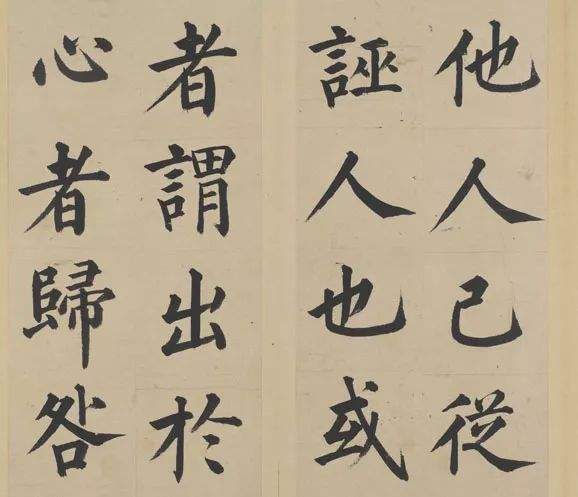 他人已從
誣人也或
者謂出於
心者歸咎